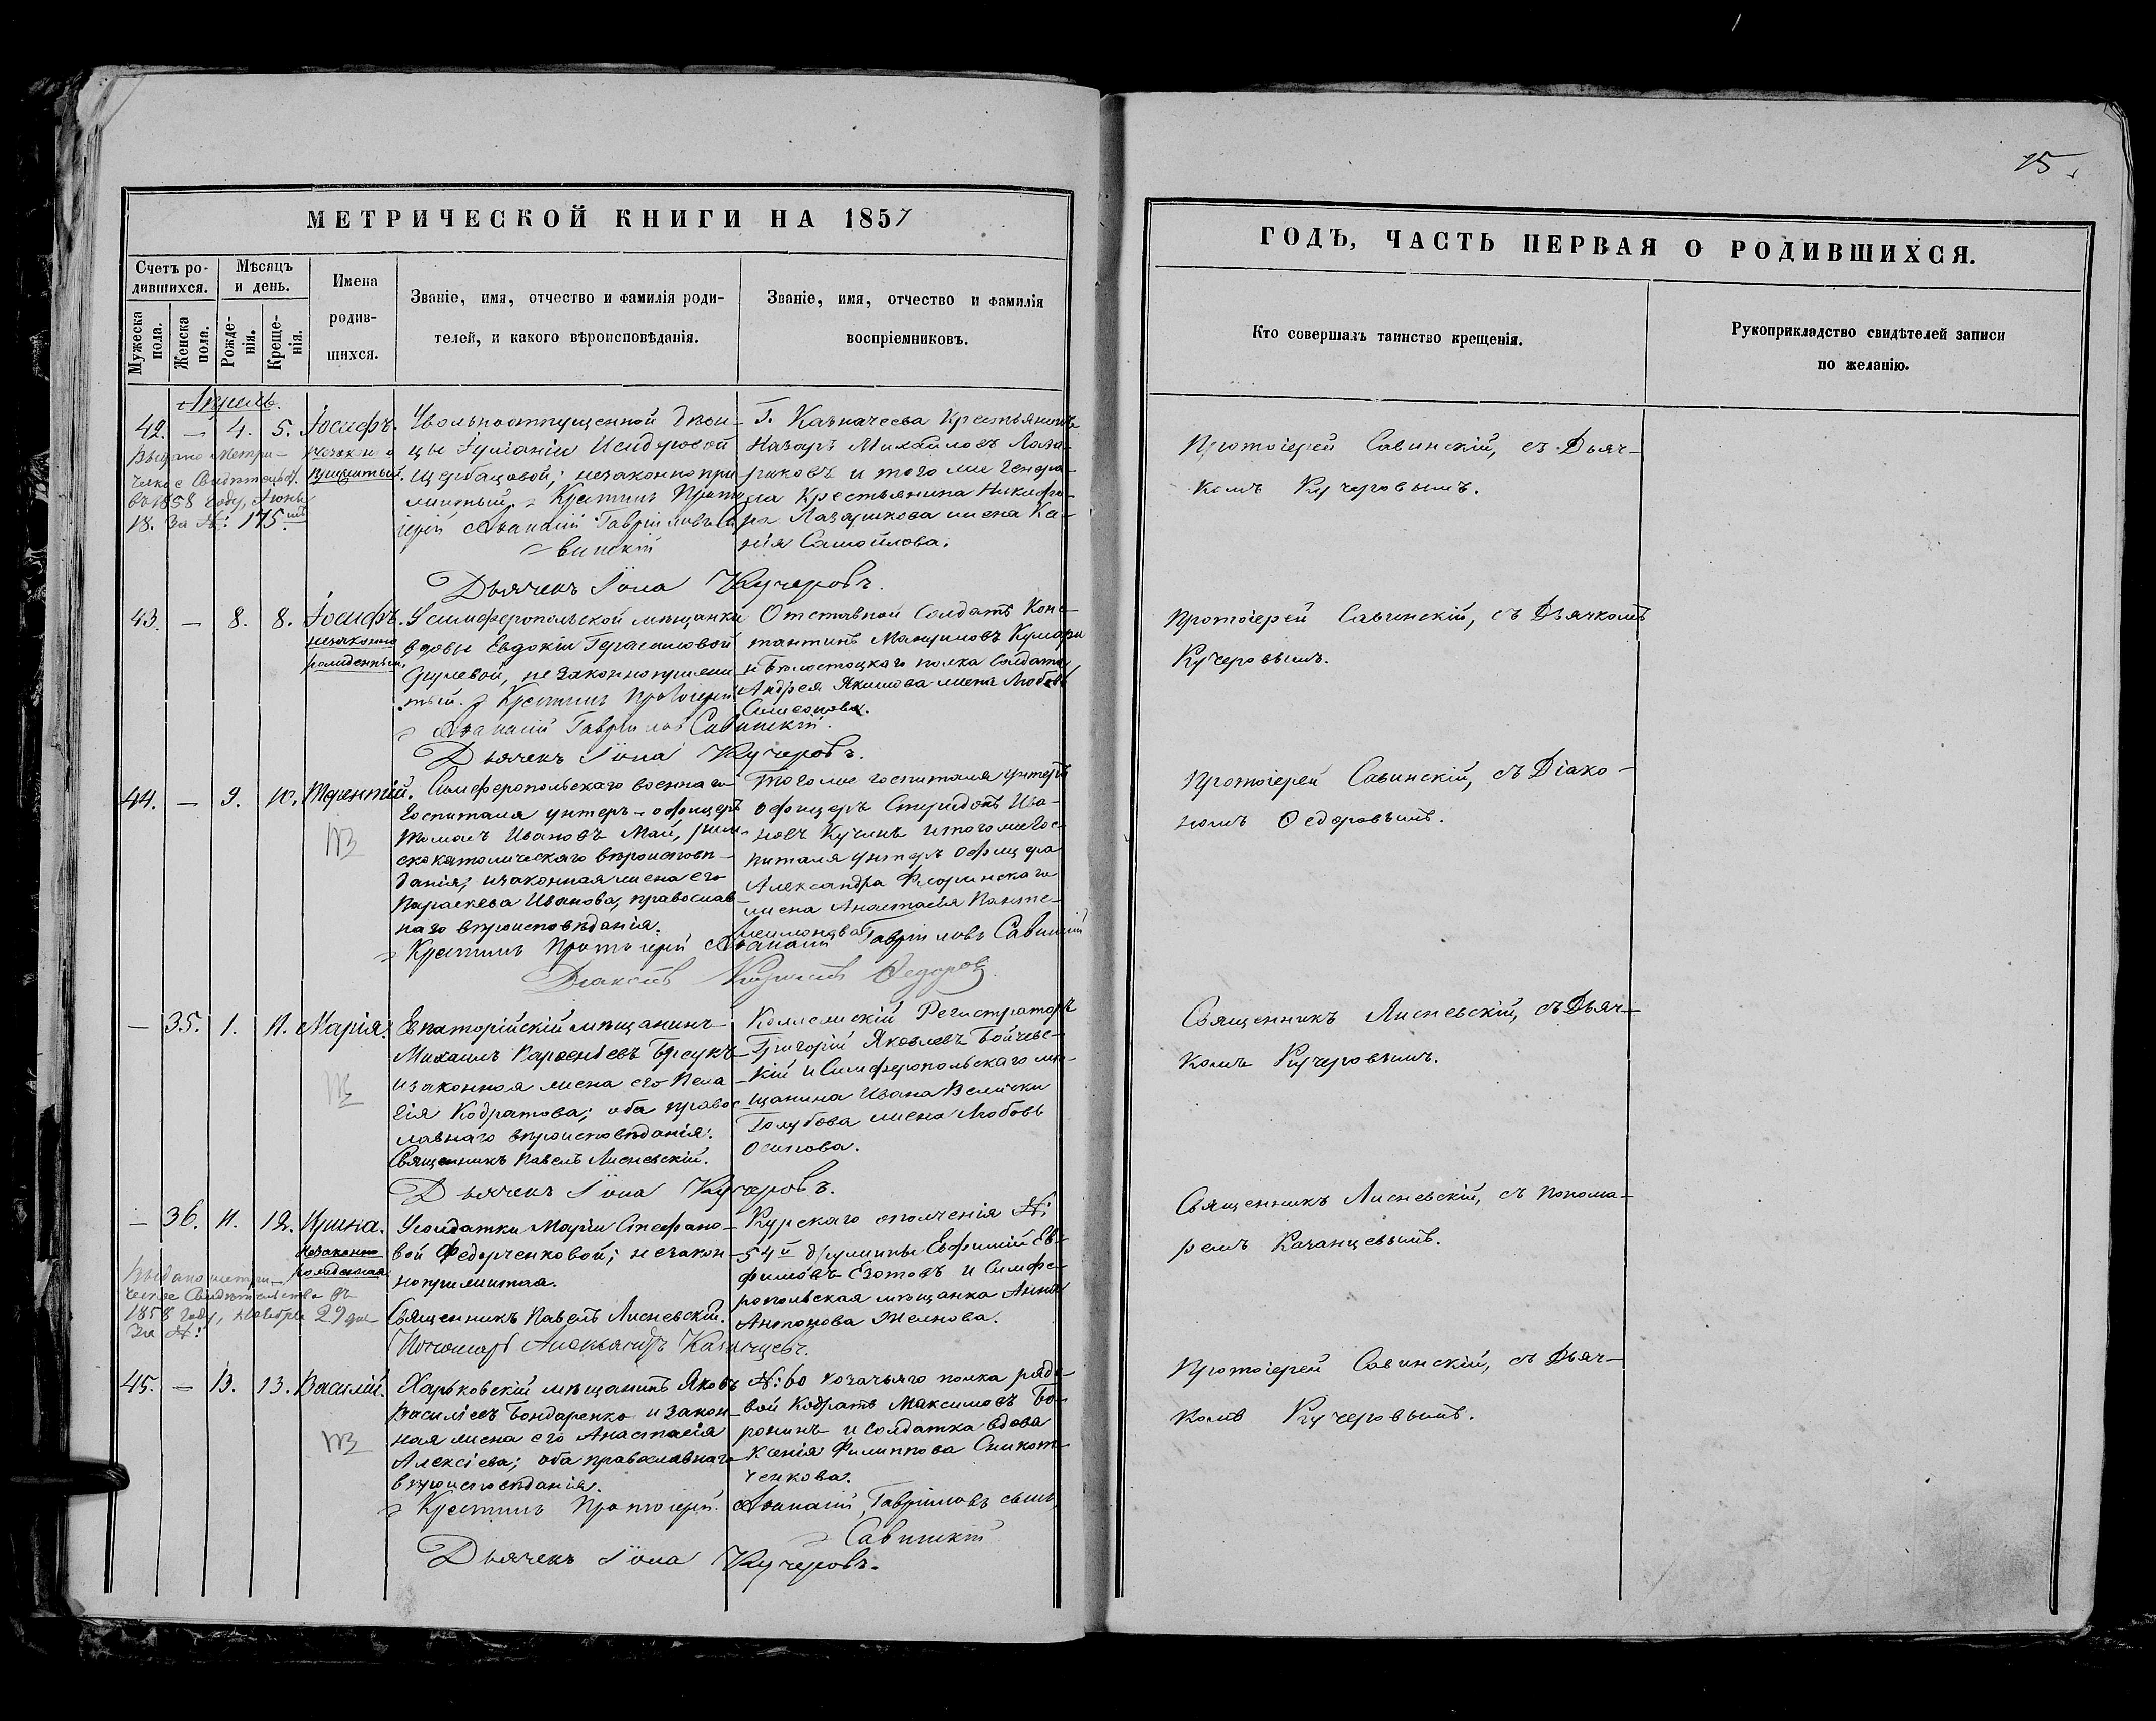 15.
МЕТРИЧЕСКОЙ КНИГИ НА 1857
ГОДЪ, ЧАСТЬ ПЕРВАЯ О РОДИВШИХСЯ.
Счетъ ро-
дившихся.
Мѣсяцъ
и день.
Мужеска
пола.
Женска
пола.
Рожде-
нія.
Креще-
нія.
Имена
родив-
шихся.
Званіе, имя, отчество и фамилія роди-
телей, и какого вѣроисповѣданія.
Званіе, имя, отчество и фамилія
воспріемниковъ.
Кто совершалъ таинство крещенія.
Рукоприкладство свидѣтелей записи
по желанію.
Апрѣль.
42. — 4. 5. Іосифъ.
незаконо
прижитый.
Выдано метри-
ческое Свидѣтельст.
въ 1858 году, Іюня
18. За №: 175.
Увольноотпущенной дѣви-
цы Іуліаніи Исидоровой
Щербацовой; незаконно при
житый. Крестилъ Прото
іерей Аѳанасій Гавріиловъ Са
винскій
Дьячекъ Іона Кучеровъ.
Г. Казначеева Крестьянинъ
Назаръ Михайловъ Лаза-
риковъ и того же Генера-
ла Крестьянина Никифо-
ра Лазарикова жена Ке-
нія Самойлова.
Протоіерей Савинскій, съ Дьяч-
комъ Кучеровымъ.
43. — 8. 8. Іосифъ.
незаконно
рожденный.
У симферопольской мѣщанки
вдовы Евдокіи Герасимовой
незаконноприжи
тый. Крестилъ Протоіерей
Аѳанасій Гавріиловъ Савинскій.
Дьячекъ Іона Кучеровъ.
Отставной Солдатъ Конс-
тантинъ
и Бѣлостоцкаго полка Солдата
Андрея Якимова жена Любовь
Симеонова.
Протоіерей Савинскій, съ Дьячкомъ
Кучеровымъ.
44. — 9. 10. Терентій.
Симферопольскаго военнаго
Госпиталя унтеръ-офицеръ
Томашъ Ивановъ Май, рим-
скокатолическаго вѣроисповѣ-
данія; и законная жена его
Параскева Иванова, православ-
наго вѣроисповѣданія.
Крестилъ Протоіерей Аѳанасій Гавріиловъ Савинскій
Діаконъ Кириллъ Ѳедоровъ.
Того же госпиталя унтеръ
офицеръ Спиридонъ Ива-
новъ Кучинъ и того же Гос-
питаля унтеръ офицера
Александра Флоринскаго
жена Анастасія Панте-
леимонова
Протоіерей Савинскій, съ Діако-
номъ Ѳедоровымъ.
— 35. 1. 11. Марія.
Евпаторійскій мѣщанинъ
Михаилъ Парѳеніевъ Брсукъ
и законная жена его Пела-
гія Кодратова; оба правос-
лавнаго вѣроисповѣданія.
Священникъ Павелъ Лисневскій.
Дьячекъ Іона Кучеровъ.
Коллежскій Регистраторъ
Григорій Яковлевъ Бойчевс-
кій и Симферопольскаго мѣ-
щанина Ивана
Голубова жена Любовь
Осипова.
Священникъ Лисневскій, съ Дьяч-
комъ Кучеровымъ.
— 36. 11. 12. Ирина.
незаконно
рожденная
Выдано метри-
ческое Свидѣтельство въ
1858 году, Ноября 29 дня
За №:
У солдатки Маріи Стефано-
вой Федорченковой; незакон-
ноприжитая.
Священникъ Павелъ Лисневскій.
Пономарь Александръ Казанцевъ.
Курскаго ополченія №:
54й дружины Евфимій Ев-
фимовъ Езотовъ и Симфе-
ропольская мѣщанка Анна
Антонова
Священникъ Лисневскій, съ понома-
ремъ Казанцевымъ.
45. — 13. 13. Василій.
Харьковскій мѣщанинъ Яковъ
Василіевъ Бондаренко и закон-
ная жена его Анастасія
Алексіева; оба православнаго
вѣроисповѣданія.
Крестилъ Протоіерей Аѳанасій Гавріиловъ сынъ
Савинскій
Дьячекъ Іона Кучеровъ.
№: 60 козачьяго полка рядо-
вой Кодратъ Максимовъ Бо-
ронинъ и солдатка вдова
Ксенія Филиппова Сникот-
ченкова.
Протоіерей Савинскій, съ Дьяч-
комъ Кучеровымъ.